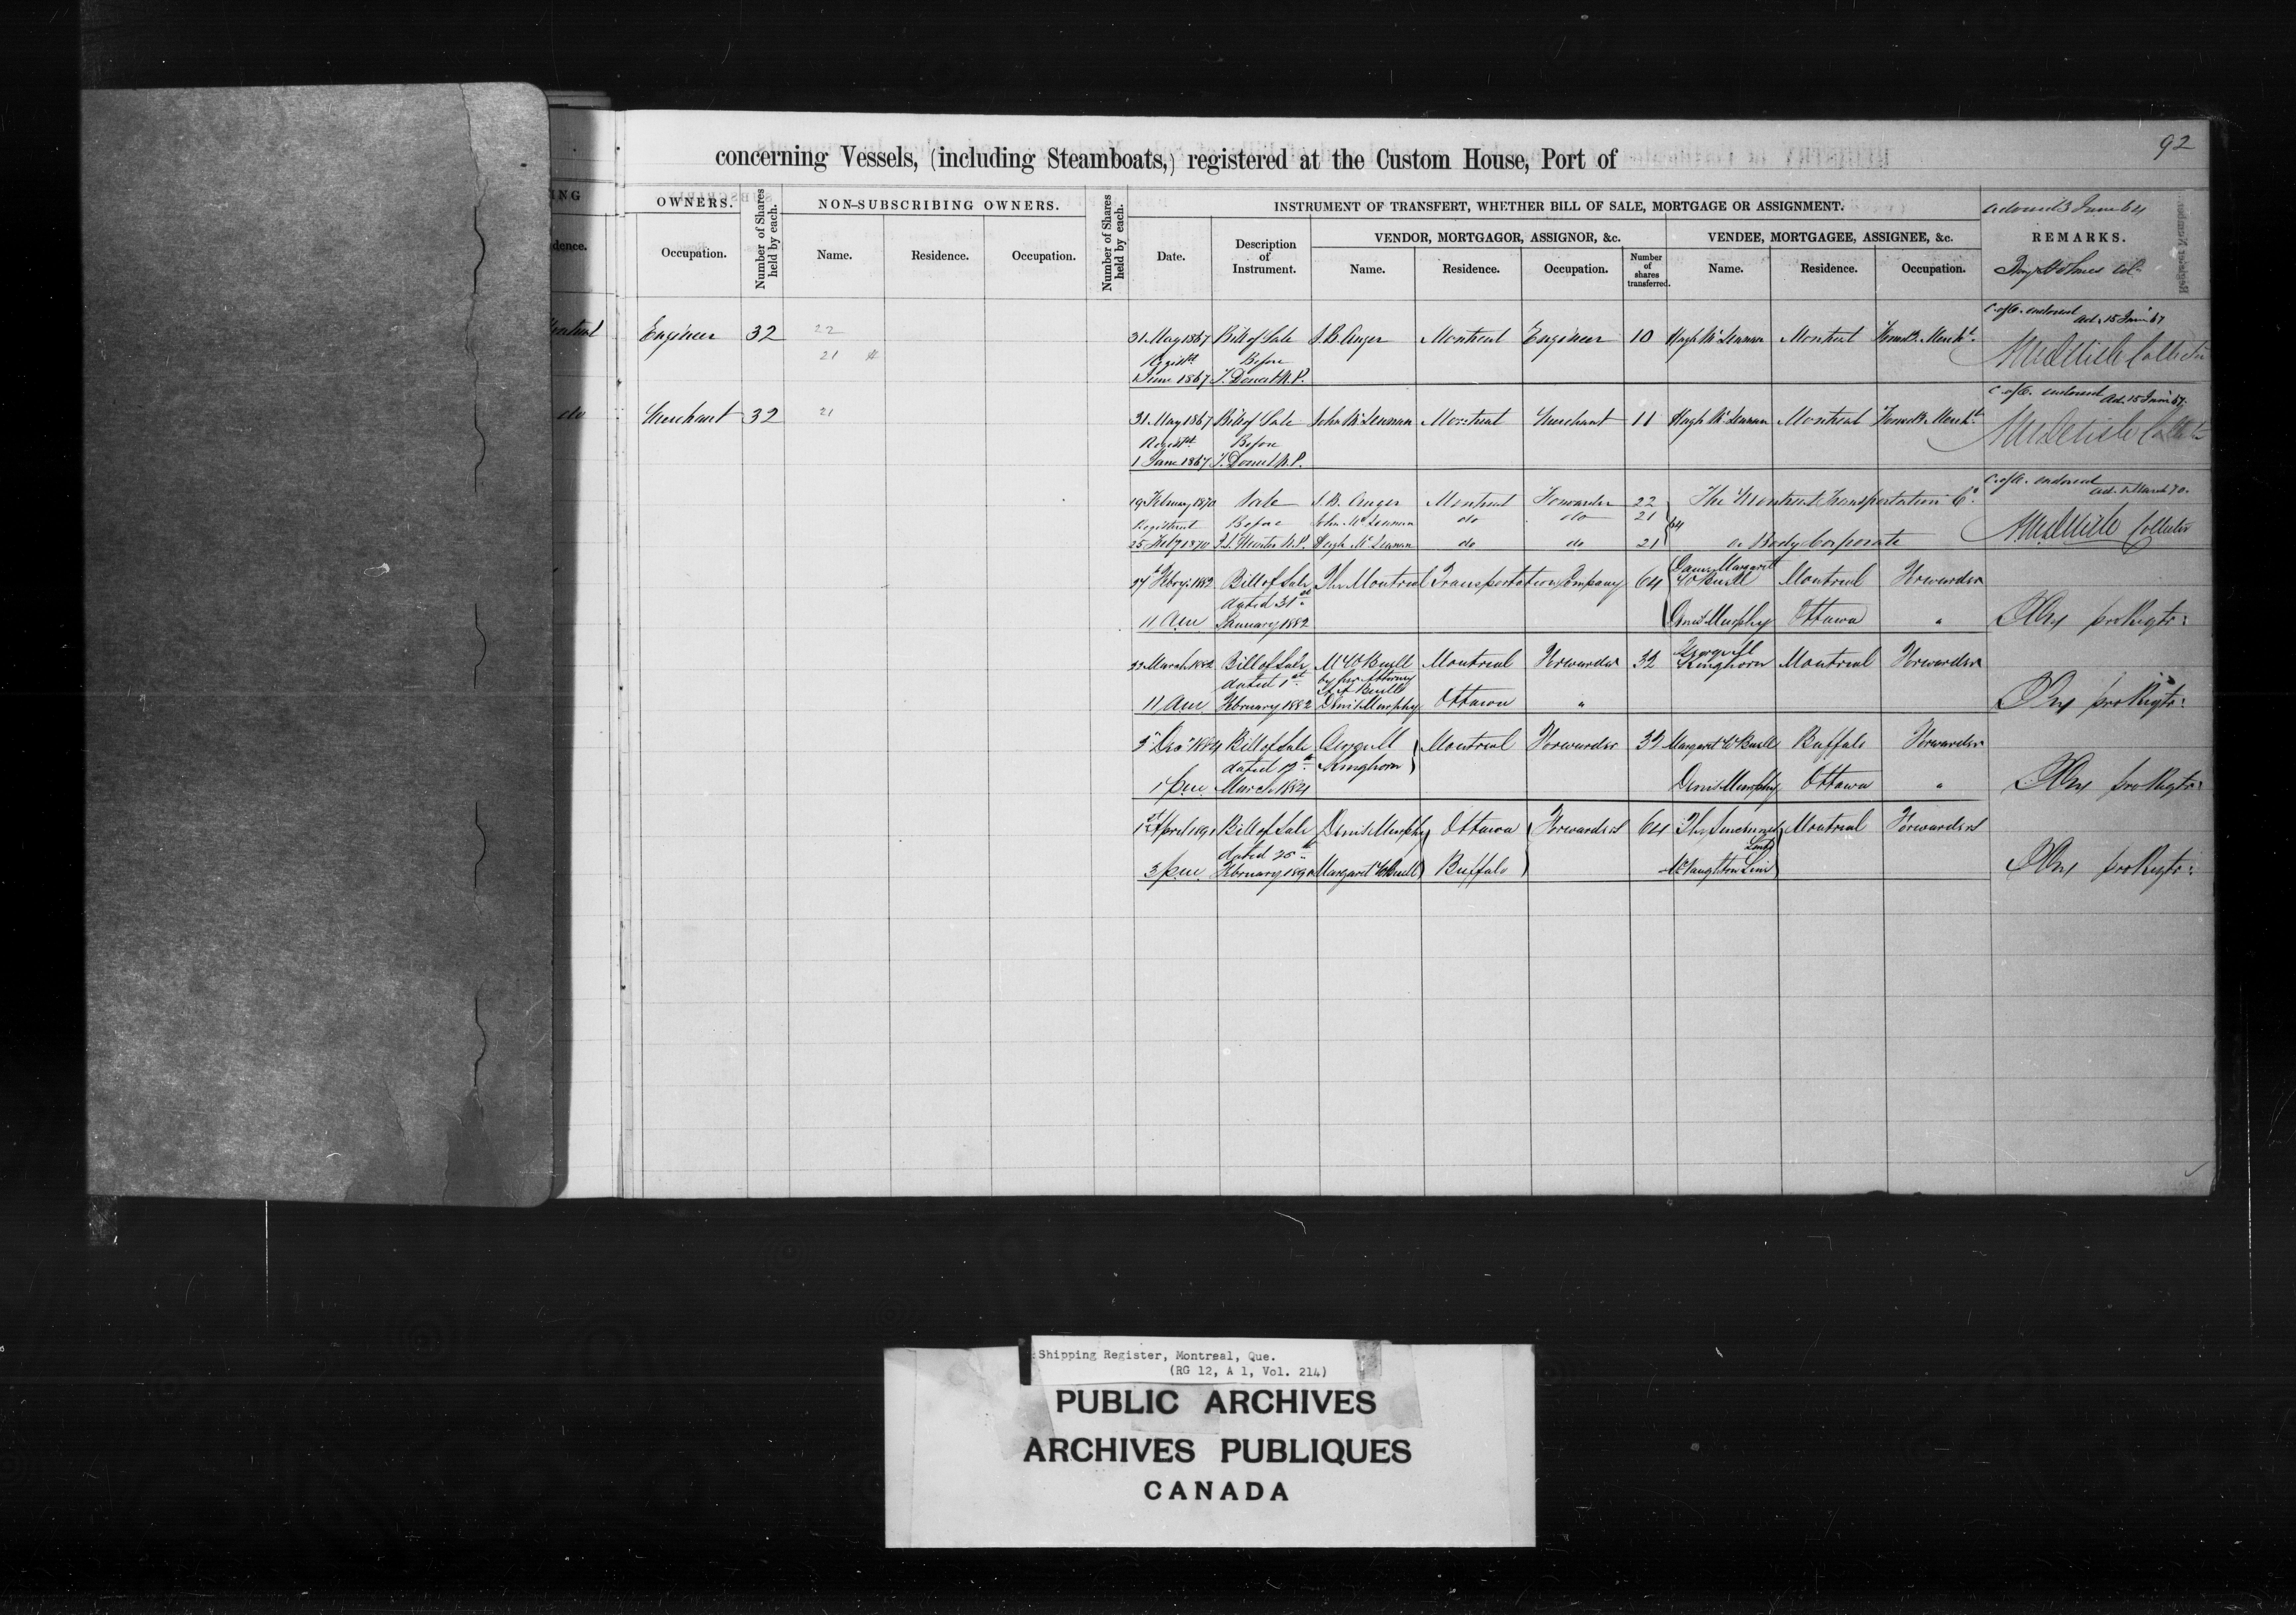 92
concerning Vessels, (including Steamboats,) registered at the Custom House, Port of
ING
OWNERS.
Number of Shares held by each.
NON-SUBSCRIBING OWNERS.
Number of Shares held by each.
INSTRUMENT OF TRANSFERT, WHETHER BILL OF SALE, MORTGAGE OR ASSIGNMENT.
June 64
dence.
Occupation.
Name.
Residence.
Occupation.
Date.
Description of Instrument.
VENDOR, MORTGAGOR, ASSIGNOR, &c.
VENDEE, MORTGAGEE, ASSIGNEE, &c.
REMARKS.
Name.
Residence.
Occupation.
Number of shares transferred.
Name.
Residence.
Occupation.
C. of O. endorsed
Engineer 32 22 31 May 1867 Bill of Sale S. B. Auger Montreal Engineer 10 Hugh McLennan Montreal
21 Regist. Before Collector
1 June 1867 N.P.
C. of O. endorsed
do Merchant 32 21 31 May 1867 Bill of Sale John McLennan Montreal Merchant 11 Hugh McLennan Montreal
Regist. Before
1 June 1867 N.P.
C. of O. endorsed
19 February 1870 Sale S. B. Auger Montreal Forwarder 22 The Montreal Transportation Co.
Registered Before John McLennan do do 21 64
25 Feby 1870 N.P. Hugh McLennan do do 21 a Body Corporate Collector
27 Febry 1882 Bill of Sale The Montreal Transportation Company 64 Dame Margaret W Buell Montreal Forwarder
dated 31st
11 am January 1882 Denis Murphy Ottawa " pro Regtr.
22 March 1882 Bill of Sale M W Buell Montreal Forwarder 32 George M Kinghorn Montreal Forwarder
dated 1st by her Attorney
11 am February 1882 Denis Murphy Ottawa " pro Regtr.
3 Dec 1884 Bill of Sale George M Kinghorn Montreal Forwarder 32 Margaret W Buell Buffalo Forwarder
dated 17th
1 pm March 1884 Denis Murphy Ottawa " pro Regtr.
April Bill of Sale Denis Murphy Ottawa Forwarders 64 Montreal Forwarders
dated 25th
3 pm February 1890 Margaret W Buell Buffalo McNaughton Line pro Regtr.
Shipping Register, Montreal, Que.
(RG 12, A 1, Vol. 214)
PUBLIC ARCHIVES
ARCHIVES PUBLIQUES
CANADA